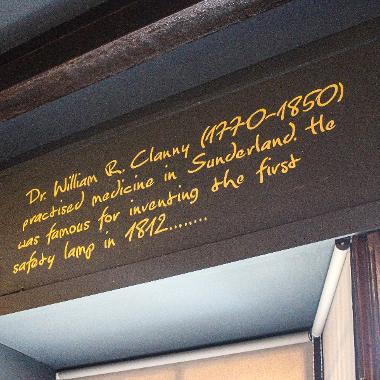 Dr. William R. Clanny (1770-1850)
practised medicine in Sunderland. He
was famous for inventing the first
safety lamp in 1812........